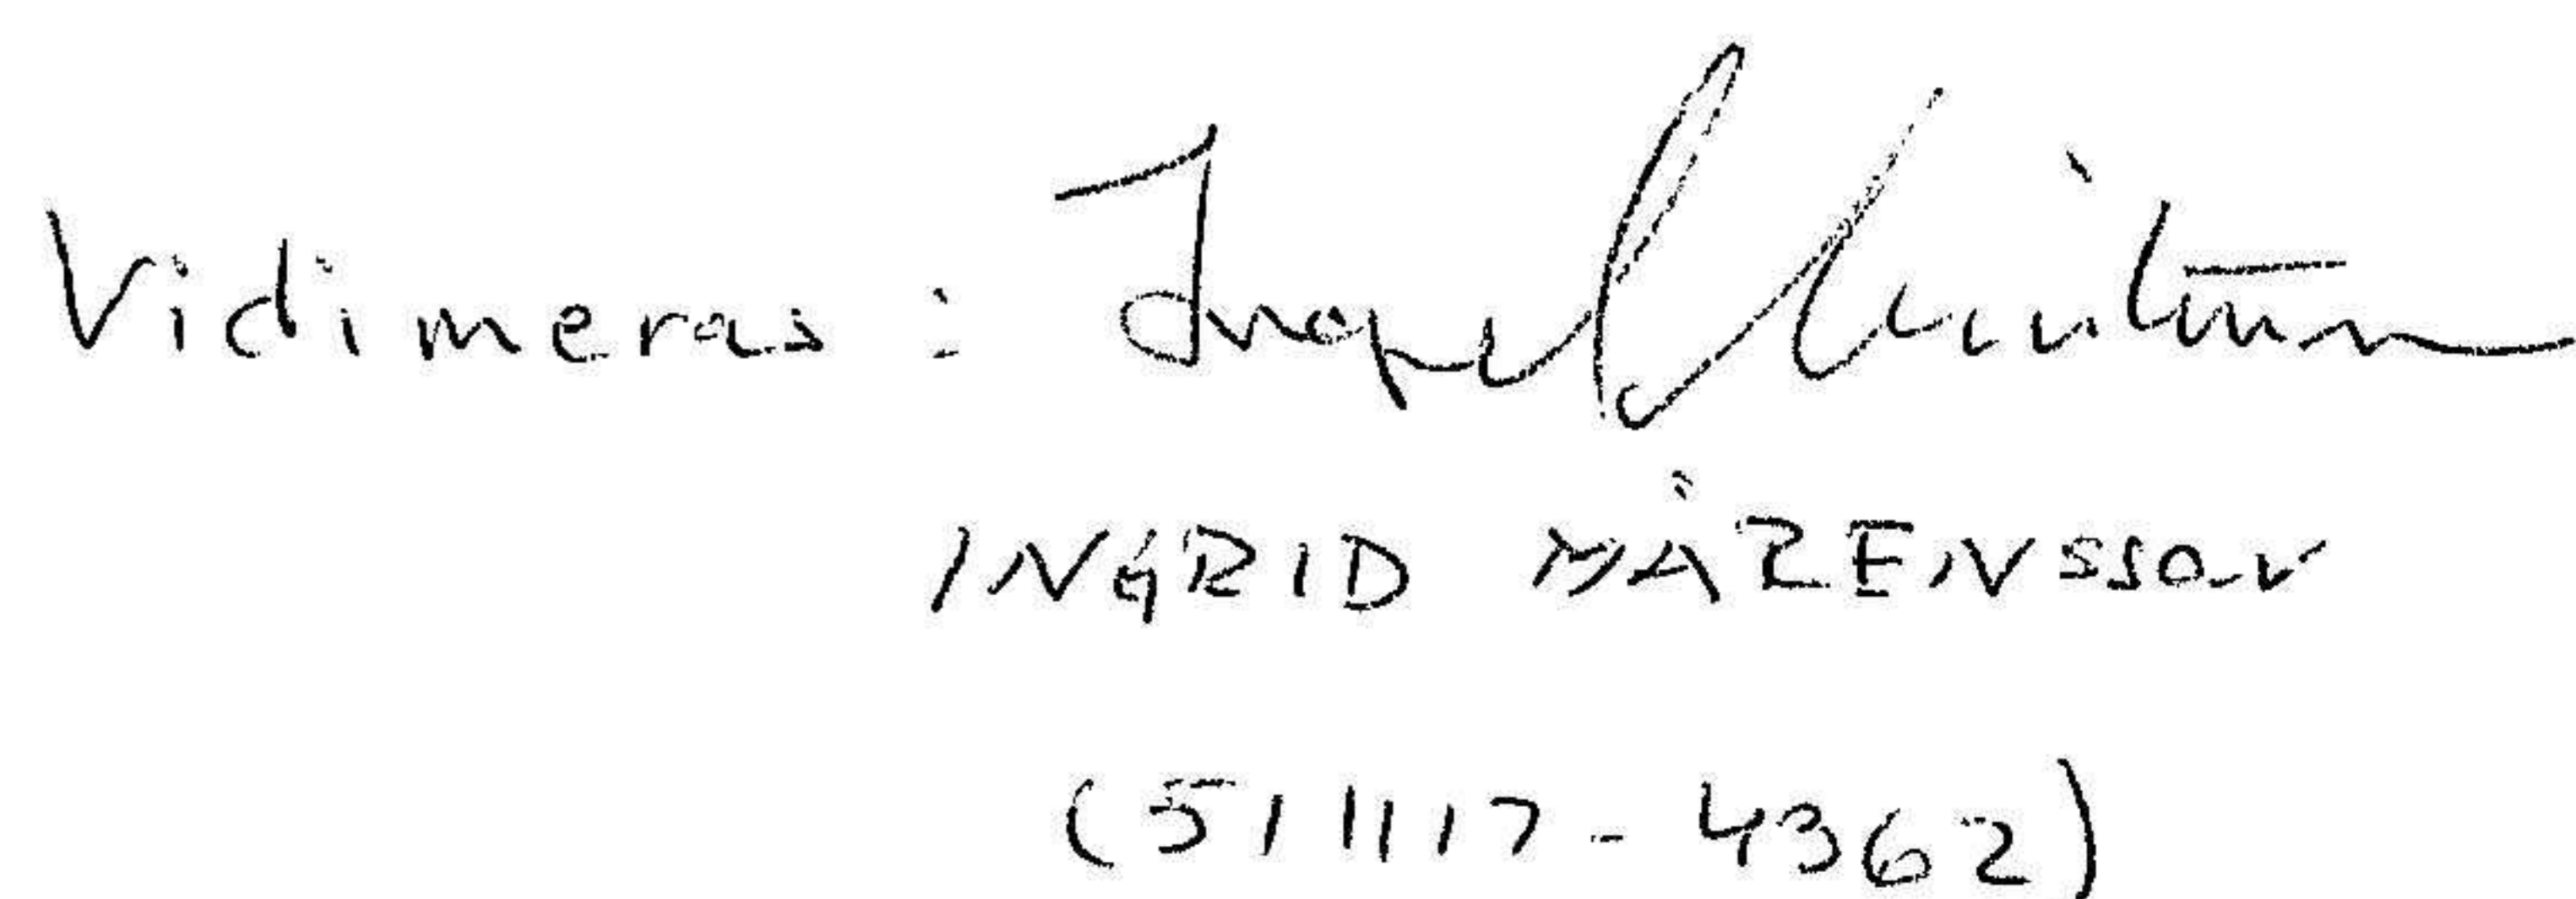 Vidimeras:
INGRID MÅRENSSON
(511117-4362)